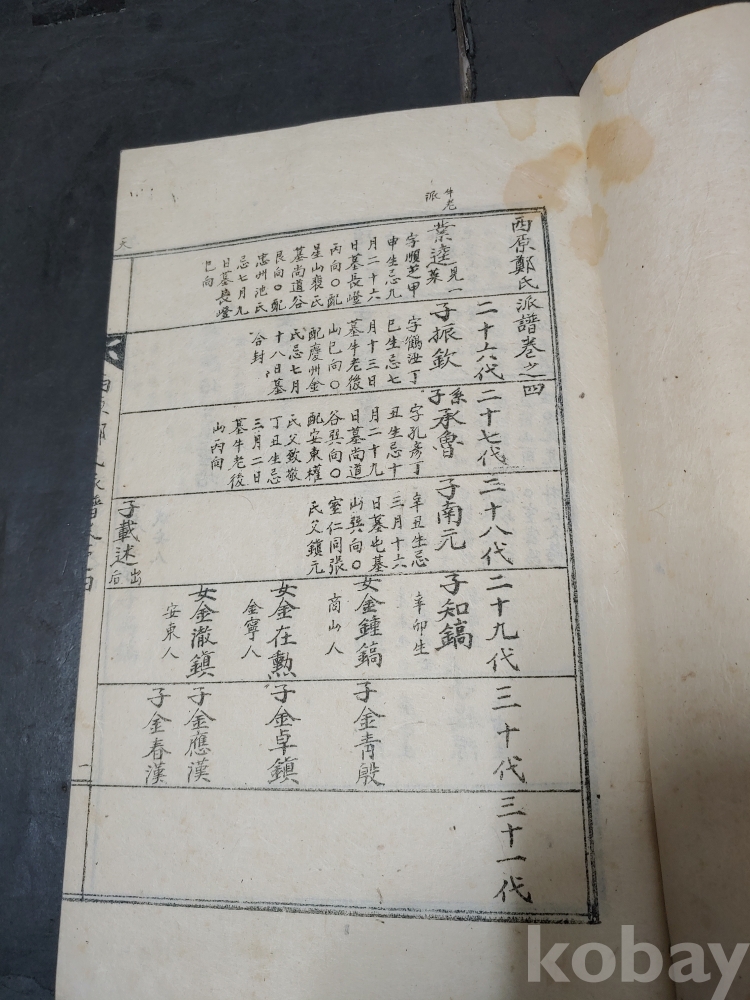 西原鄭氏派譜卷之四
牛老
派
業逵見一
葉
字順芝甲
申生忌九
月二十六
日墓長燈
丙向〇配
星山裵氏
墓尚道谷
艮向〇配
忠州池氏
忌七月九
日墓長燈
巳向
二十六代
子振欽
字鶴汝丁
巳生忌七
月十三日
墓牛老後
山巳向〇
配慶州金
氏忌七月
十八日墓
合封
二十七代
系
子承魯
字孔彥丁
丑生忌十
月二十九
日墓尚道
谷巽向〇
配安東權
氏父致敬
丁丑生忌
三月二日
墓牛老後
山丙向
二十八代
子南元
辛丑生忌
三月十六
日墓屯墓
山巽向〇
室仁同張
氏父鎭元
子載述出
后
二十九代
子知鎬
辛卯生
女金鍾鎬
商山人
女金在勳
金寧人
女金澈鎭
安東人
三十代
子金青殷
子金卓鎭
子金應漢
子金春漢
三十一代
天
西原鄭氏派譜卷之四
一
kobay